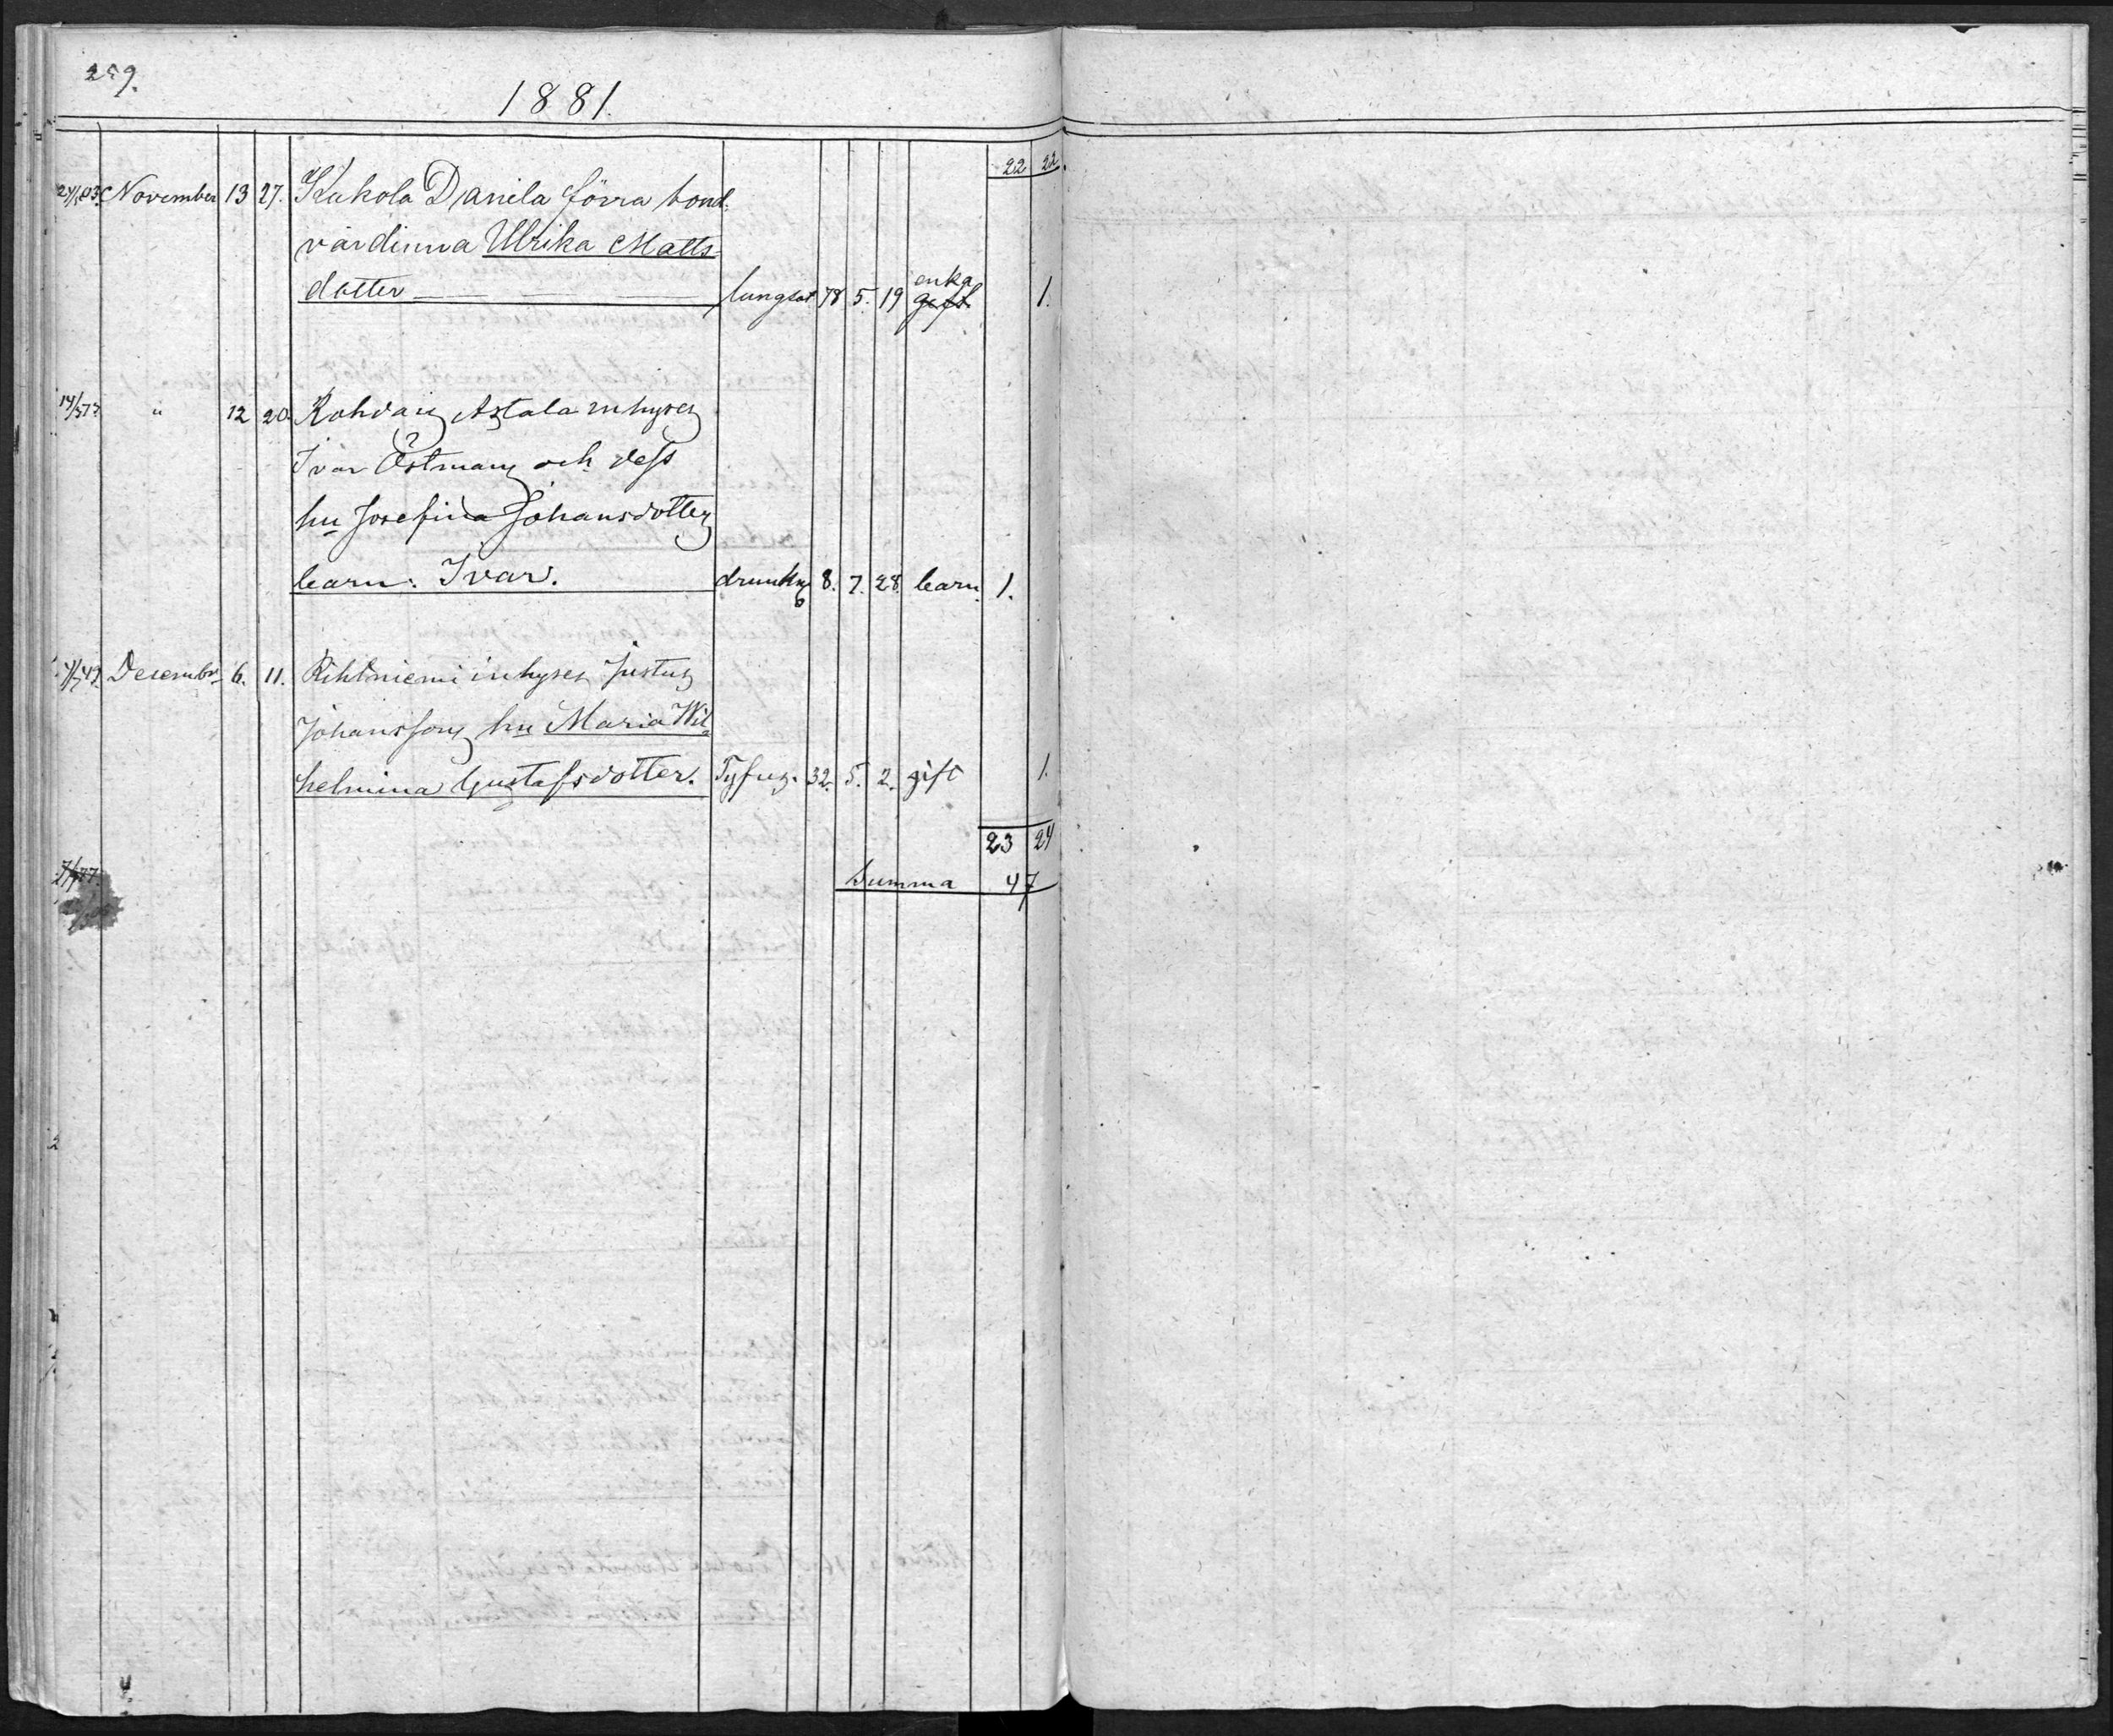 259.
1881.
22 22.
24/5 03. November 13 27. Kukola Daniela förra bond
värdinna Ulrika Matts
dotter lungsot 78 5. 19 enka gift 1.
14/3 73 " 12 20. Rohdais Astala inhyses
Ivar Östman och dess
hu Josefina Johansdotter
barn: Ivar. drunkng 8. 7. 28. barn. 1.
4/7 49. Desembr 6. 11. Rihtniemi inhyses Justus
Johansson hu Maria Wil
helmina Gustafsdotter. Tyfus. 32. 5. 2. gift 1.
23 24
Summa 47